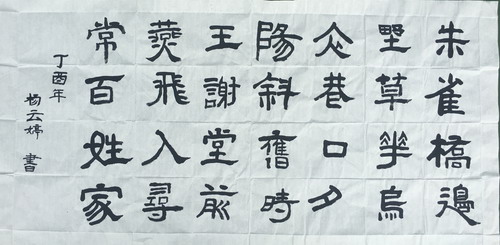 朱雀橋邊
野草花烏
衣巷口夕
陽斜舊時
王謝堂前
燕飛入尋
常百姓家
丁酉年
杨云娣 書